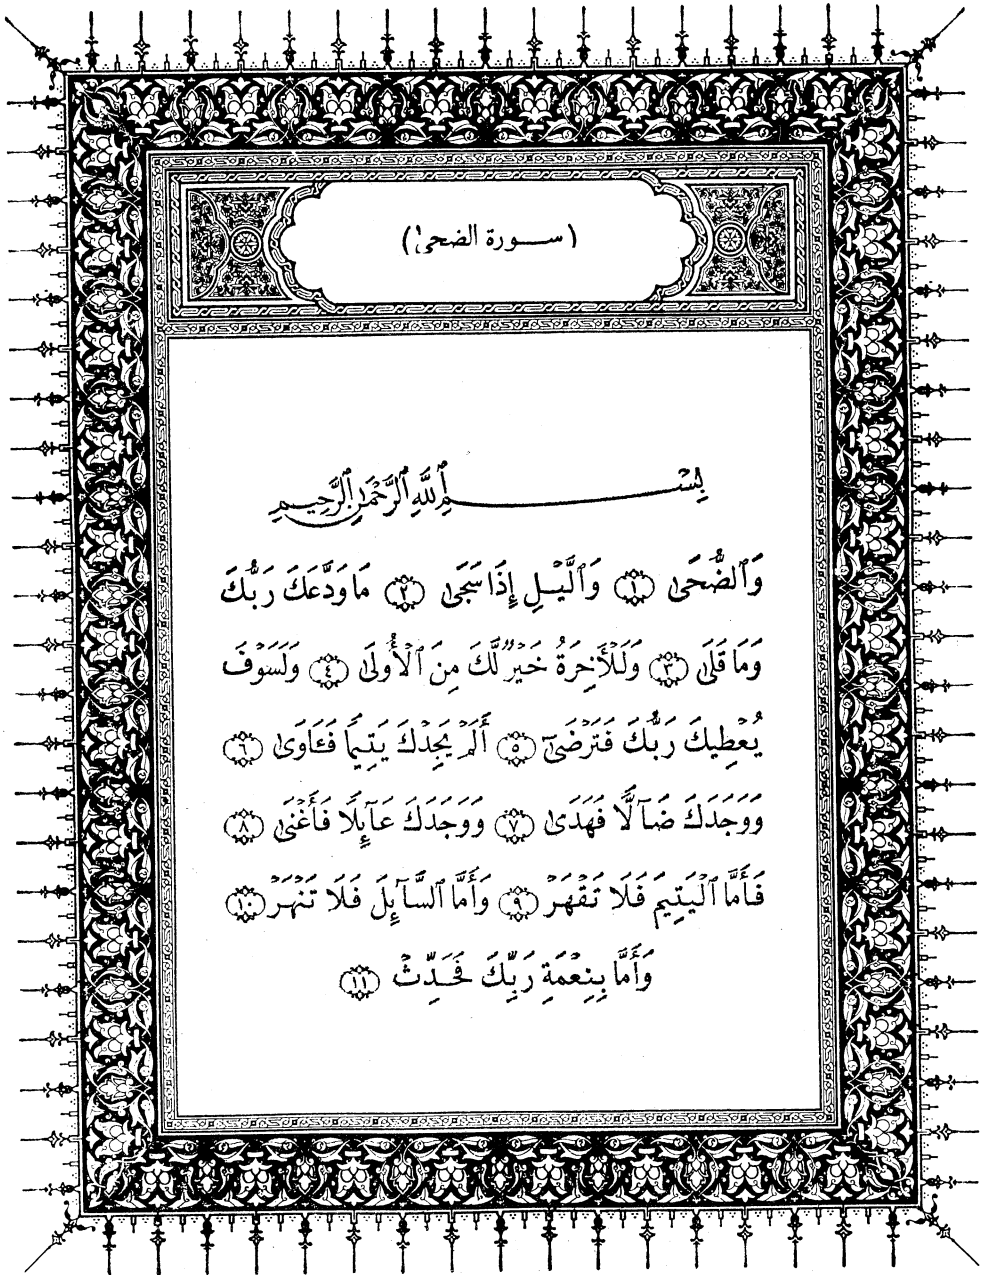 (سـورة الضحى)
بِسْمِ ٱللَّهِ ٱلرَّحْمَٰنِ ٱلرَّحِيمِ
وَٱلضُّحَىٰ ١ وَٱلَّيْلِ إِذَا سَجَىٰ ٢ مَا وَدَّعَكَ رَبُّكَ
وَمَا قَلَىٰ ٣ وَلَلْأٓخِرَةُ خَيْرٌ لَّكَ مِنَ ٱلْأُولَىٰ ٤ وَلَسَوْفَ
يُعْطِيكَ رَبُّكَ فَتَرْضَىٰٓ ٥ أَلَمْ يَجِدْكَ يَتِيمًا فَـَٔاوَىٰ ٦
وَوَجَدَكَ ضَآلًّا فَهَدَىٰ ٧ وَوَجَدَكَ عَآئِلًا فَأَغْنَىٰ ٨
فَأَمَّا ٱلْيَتِيمَ فَلَا تَقْهَرْ ٩ وَأَمَّا ٱلسَّآئِلَ فَلَا تَنْهَرْ ١٠
وَأَمَّا بِنِعْمَةِ رَبِّكَ فَحَدِّثْ ١١